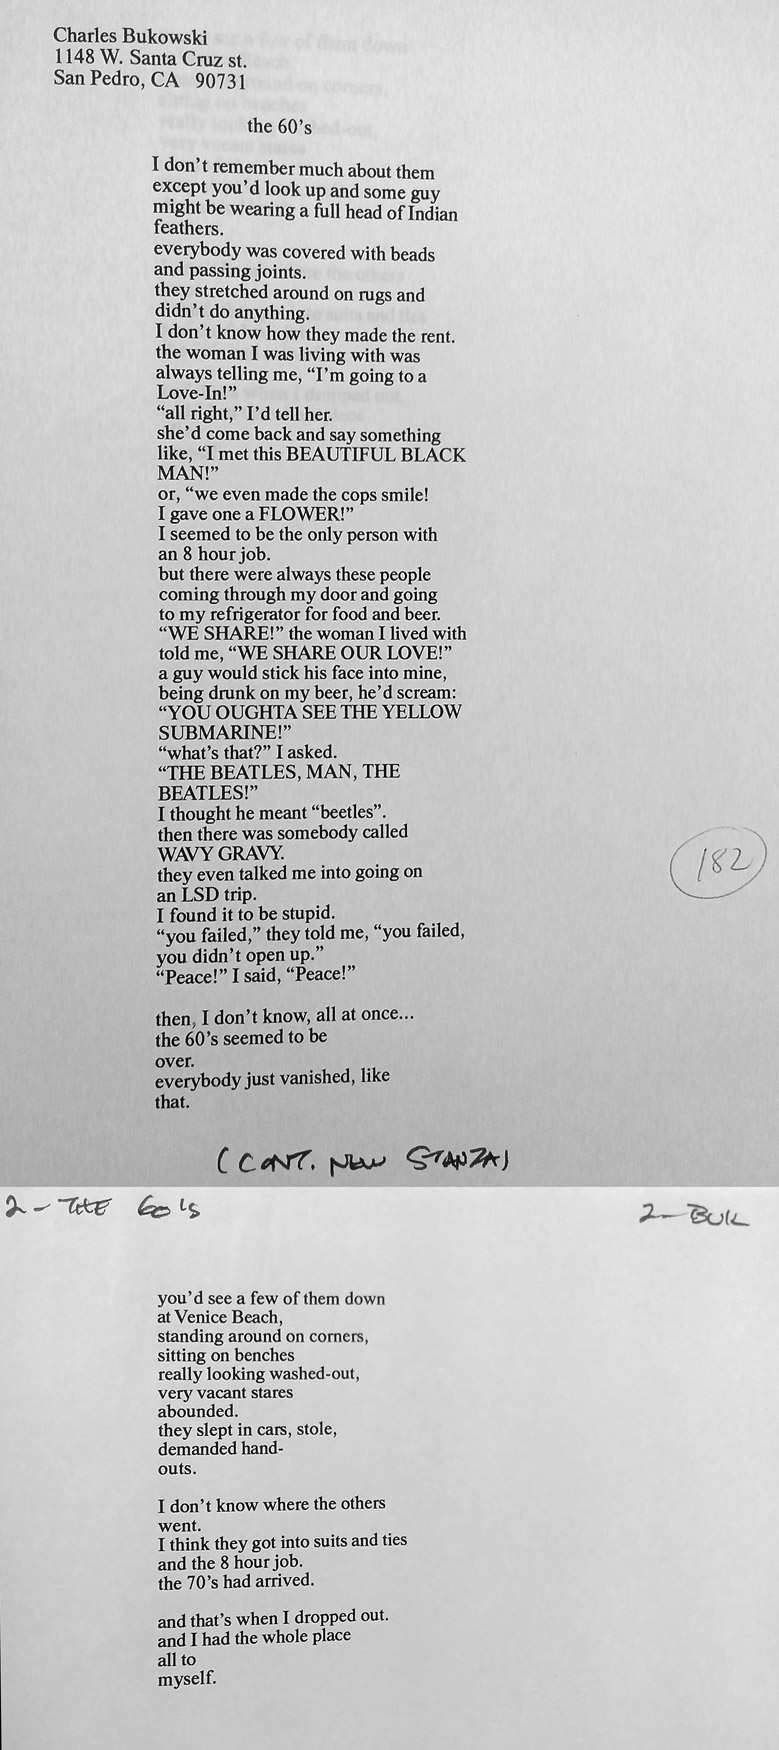 Charles Bukowski
1148 W. Santa Cruz st.
San Pedro, CA 90731
the 60's
I don't remember much about them
except you'd look up and some guy
might be wearing a full head of Indian
feathers.
everybody was covered with beads
and passing joints.
they stretched around on rugs and
didn't do anything.
I don't know how they made the rent.
the woman I was living with was
always telling me, “I'm going to a
Love-In!”
“all right,” I'd tell her.
she'd come back and say something
like, “I met this BEAUTIFUL BLACK
MAN!”
or, “we even made the cops smile!
I gave one a FLOWER!”
I seemed to be the only person with
an 8 hour job.
but there were always these people
coming through my door and going
to my refrigerator for food and beer.
“WE SHARE!” the woman I lived with
told me, “WE SHARE OUR LOVE!”
a guy would stick his face into mine,
being drunk on my beer, he'd scream:
“YOU OUGHTA SEE THE YELLOW
SUBMARINE!”
“what's that?” I asked.
“THE BEATLES, MAN, THE
BEATLES!”
I thought he meant “beetles”.
then there was somebody called
WAVY GRAVY.
182
they even talked me into going on
an LSD trip.
I found it to be stupid.
“you failed,” they told me, “you failed,
you didn't open up.”
“Peace!” I said, “Peace!”
then, I don't know, all at once...
the 60's seemed to be
over.
everybody just vanished, like
that.
(CONT. NEW STANZA)
2 - THE 60's
2 - BUK
you'd see a few of them down
at Venice Beach,
standing around on corners,
sitting on benches
really looking washed-out,
very vacant stares
abounded.
they slept in cars, stole,
demanded hand-
outs.
I don't know where the others
went.
I think they got into suits and ties
and the 8 hour job.
the 70's had arrived.
and that's when I dropped out.
and I had the whole place
all to
myself.